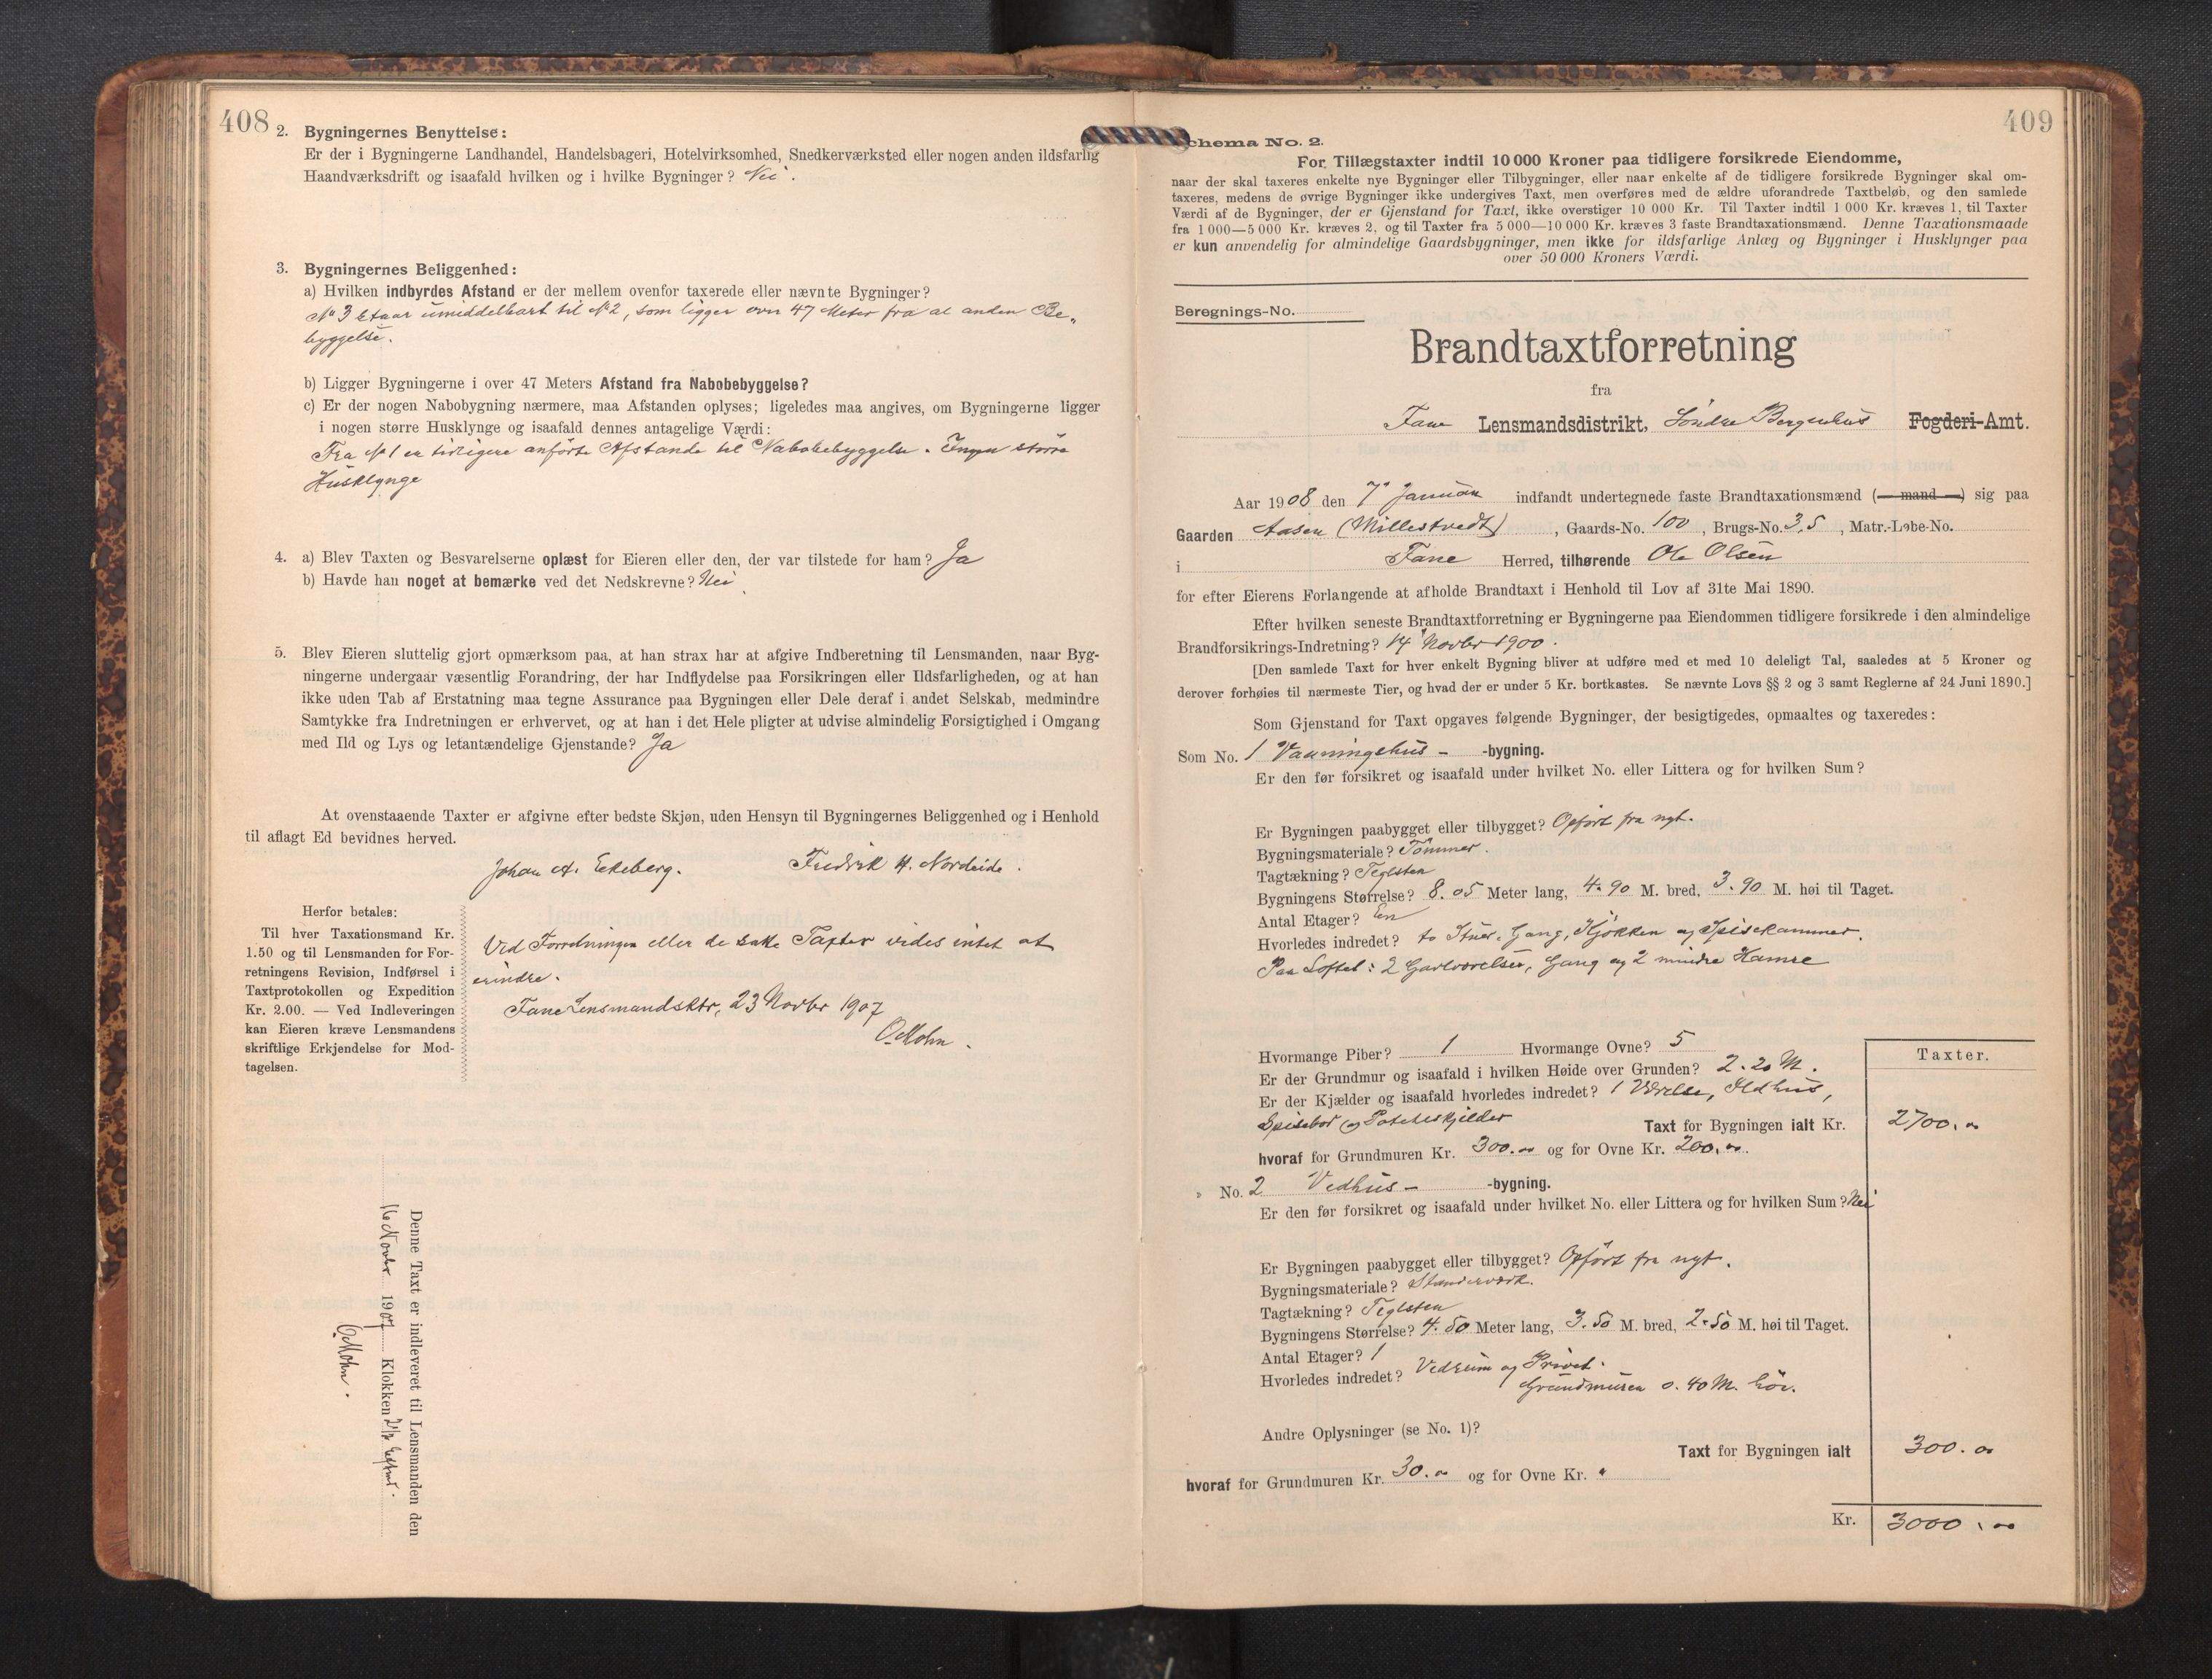 408
2. Bygningernes Benyttelse:
Er der i Bygningerne Landhandel, Handelsbageri, Hotelvirksomhed, Snedkerværksted eller nogen anden ildsfarlig
Haandværksdrift og isaafald hvilken og i hvilke Bygninger? Nei.
3. Bygningernes Beliggenhed:
a) Hvilken indbyrdes Afstand er der mellem ovenfor taxerede eller nævnte Bygninger?
No 3 staar umiddelbart til No 2, som ligger over 47 Meter fra al anden Be-
byggelse.
b) Ligger Bygningerne i over 47 Meters Afstand fra Nabobebyggelse?
c) Er der nogen Nabobygning nærmere, maa Afstanden oplyses; ligeledes maa angives, om Bygningerne ligger
i nogen større Husklynge og isaafald dennes antagelige Værdi:
Fra No 1 er tidligere anførte Afstande til Nabobebyggelse. Ingen større
Husklynge
4. a) Blev Taxten og Besvarelserne oplæst for Eieren eller den, der var tilstede for ham? Ja
b) Havde han noget at bemærke ved det Nedskrevne? Nei.
5. Blev Eieren sluttelig gjort opmærksom paa, at han strax har at afgive Indberetning til Lensmanden, naar Byg-
ningerne undergaar væsentlig Forandring, der har Indflydelse paa Forsikringen eller Ildsfarligheden, og at han
ikke uden Tab af Erstatning maa tegne Assurance paa Bygningen eller Dele deraf i andet Selskab, medmindre
Samtykke fra Indretningen er erhvervet, og at han i det Hele pligter at udvise almindelig Forsigtighed i Omgang
med Ild og Lys og letantændelige Gjenstande? Ja
At ovenstaaende Taxter er afgivne efter bedste Skjøn, uden Hensyn til Bygningernes Beliggenhed og i Henhold
til aflagt Ed bevidnes herved.
Johan A. Ekeberg. Fredrik H. Nordeide.
Herfor betales:
Til hver Taxationsmand Kr.
1.50 og til Lensmanden for For-
retningens Revision, Indførsel i
Taxtprotokollen og Expedition
Kr. 2.00. — Ved Indleveringen
kan Eieren kræve Lensmandens
skriftlige Erkjendelse for Mod-
tagelsen.
Ved Forretningen eller de satte Taxter vides intet at
erindre.
Fane Lensmandsktr, 23 Novbr 1907
O. Mohn.
Denne Taxt er indleveret til Lensmanden den
16 Novbr 1907 Klokken 2 1/2 Efterm.
O. Mohn.
409
chema No. 2.
For Tillægstaxter indtil 10 000 Kroner paa tidligere forsikrede Eiendomme,
naar der skal taxeres enkelte nye Bygninger eller Tilbygninger, eller naar enkelte af de tidligere forsikrede Bygninger skal om-
taxeres, medens de øvrige Bygninger ikke undergives Taxt, men overføres med de ældre uforandrede Taxtbeløb, og den samlede
Værdi af de Bygninger, der er Gjenstand for Taxt, ikke overstiger 10 000 Kr. Til Taxter indtil 1 000 Kr. kræves 1, til Taxter
fra 1 000—5 000 Kr. kræves 2, og til Taxter fra 5 000—10 000 Kr. kræves 3 faste Brandtaxationsmænd. Denne Taxationsmaade
er kun anvendelig for almindelige Gaardsbygninger, men ikke for ildsfarlige Anlæg og Bygninger i Husklynger paa
over 50 000 Kroners Værdi.
Beregnings-No.
Brandtaxtforretning
fra
Fane Lensmandsdistrikt, Søndre Bergenhus Fogderi-Amt.
Aar 1908 den 7de Januar indfandt undertegnede faste Brandtaxationsmænd (— mand —) sig paa
Gaarden Aasen (Millestvedt), Gaards-No. 100, Brugs-No. 3,5, Matr.-Løbe-No.
i Fane Herred, tilhørende Ole Olsen
for efter Eierens Forlangende at afholde Brandtaxt i Henhold til Lov af 31te Mai 1890.
Efter hvilken seneste Brandtaxtforretning er Bygningerne paa Eiendommen tidligere forsikrede i den almindelige
Brandforsikrings-Indretning? 14 Novbr 1900.
[Den samlede Taxt for hver enkelt Bygning bliver at udføre med et med 10 deleligt Tal, saaledes at 5 Kroner og
derover forhøies til nærmeste Tier, og hvad der er under 5 Kr. bortkastes. Se nævnte Lovs §§ 2 og 3 samt Reglerne af 24 Juni 1890.]
Som Gjenstand for Taxt opgaves følgende Bygninger, der besigtigedes, opmaaltes og taxeredes:
Som No. 1 Vaaningshus - -bygning.
Er den før forsikret og isaafald under hvilket No. eller Littera og for hvilken Sum?
Er Bygningen paabygget eller tilbygget? Opført fra nyt.
Bygningsmateriale? Tømmer.
Tagtækning? Teglsten
Bygningens Størrelse? 8.05 Meter lang, 4.90 M. bred, 3.90 M. høi til Taget.
Antal Etager? En
Hvorledes indredet? to Stuer, Gang, Kjøkken og Spisekammer.
Paa Loftet: 2 Gavlværelser, Gang og 2 mindre Kamre
Hvormange Piber? 1 Hvormange Ovne? 5
Taxter.
Er der Grundmur og isaafald i hvilken Høide over Grunden? 2.20 M.
Er der Kjælder og isaafald hvorledes indredet? 1 Værelse, Ildhus,
Spisebod og Poteteskjelder Taxt for Bygningen ialt Kr. 2700.00
hvoraf for Grundmuren Kr. 300.00 og for Ovne Kr. 200.00
" No. 2 Vedhus - -bygning.
Er den før forsikret og isaafald under hvilket No. eller Littera og for hvilken Sum? Nei
Er Bygningen paabygget eller tilbygget? Opført fra nyt.
Bygningsmateriale? Standerværk.
Tagtækning? Teglsten
Bygningens Størrelse? 4.50 Meter lang, 3.50 M. bred, 2.50 M. høi til Taget.
Antal Etager? 1
Hvorledes indredet? Vedrum og Privet.
Grundmuren 0.40 M. høi.
Andre Oplysninger (se No. 1)?
Taxt for Bygningen ialt 300.00
hvoraf for Grundmuren Kr. 30.00 og for Ovne Kr. "
Kr. 3000.00